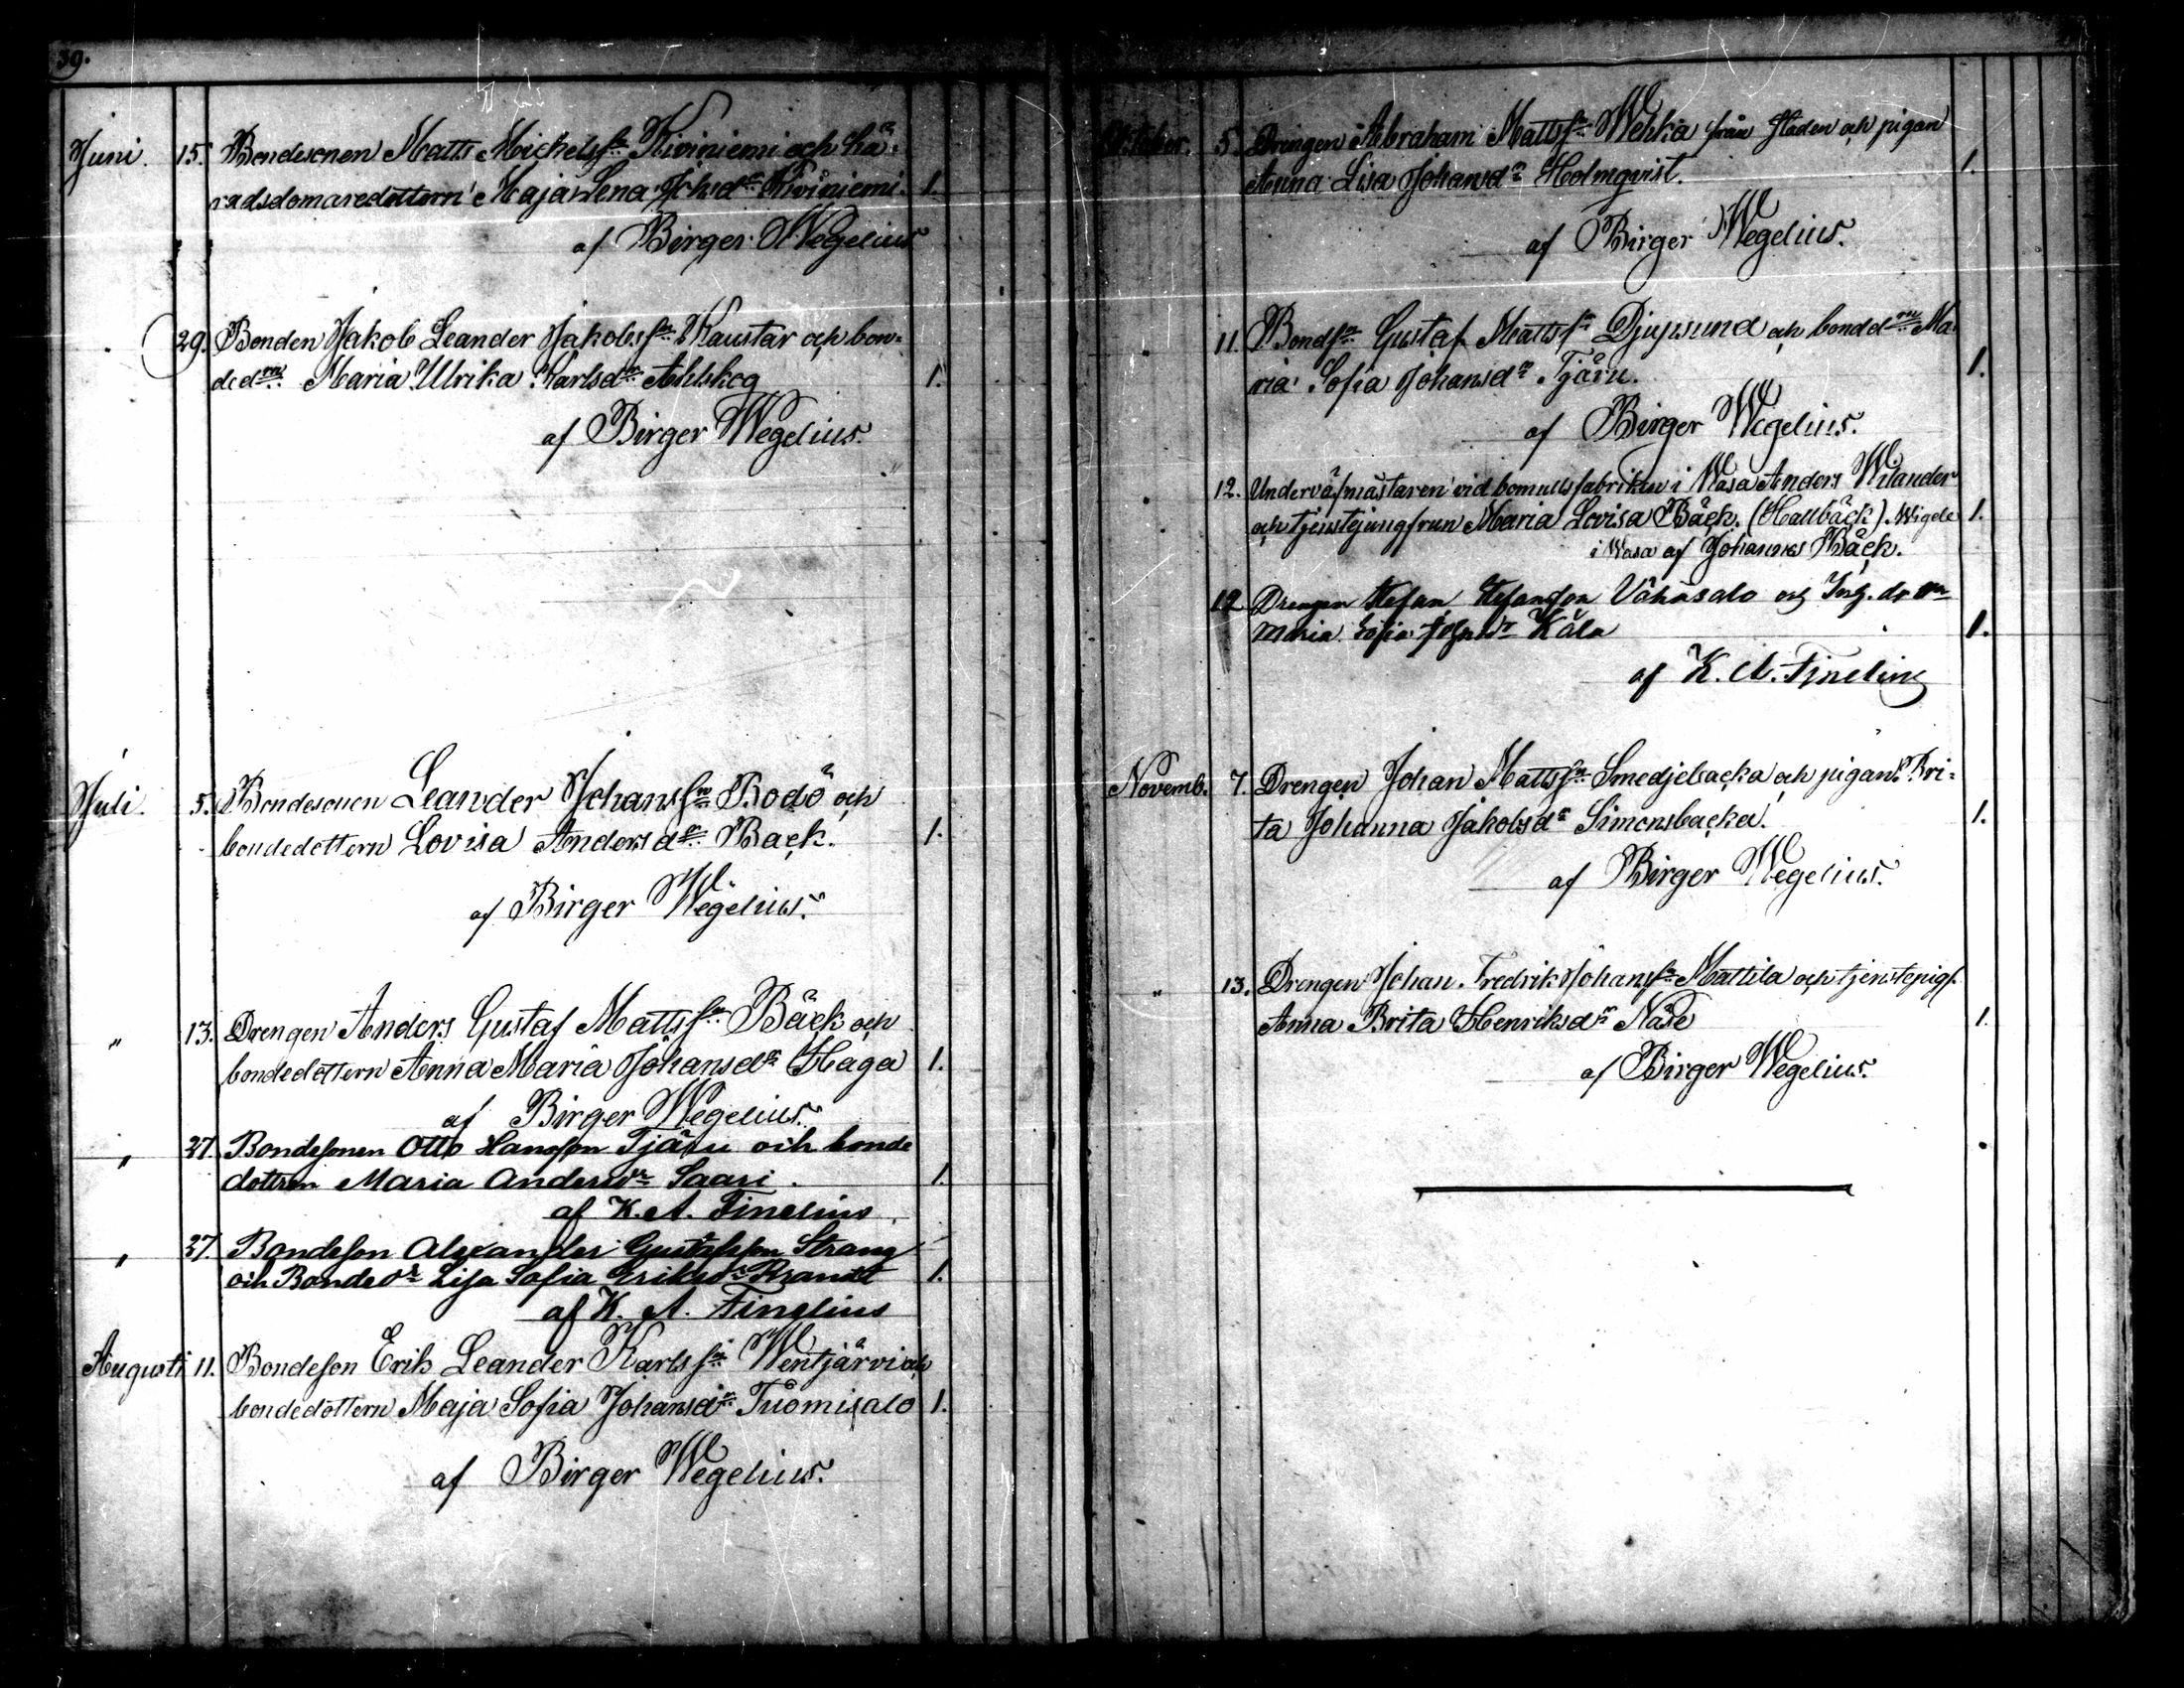 39.
Juni. 15. Bondesonen Matts Mickelsson Kiviniemi och Hä-
radsdomaredottern Maja Lena Johsdr Kiviniemi. 1.
af Birger Wegelius
29. Bonden Jakob Leander Jakobssn Kaustar och bon-
ded:rn Maria Ulrika Karlsdr Ahlskog 1.
af Birger Wegelius.
Juli. 5. Bondesonen Leander Johanssn Bodö och
bondedottern Lovisa Andersdr Back. 1.
af Birger Wegelius.
" 13. Drengen Anders Gustaf Mattssn Bäck och
bondedottern Anna Maria Johansdr Haga 1.
af Birger Wegelius.
" 27. Bondesonen Otto Hansson Tjäru och bonde
dottren Maria Andersdr Saari. 1.
af K. A. Finelius
" 27 Bondeson Alexander Gustafsson Strang
och Bondedr Lisa Sofia Eriksdr Brandt 1.
af K. A. Finelius
Augusti 11. Bondeson Erik Leander Karlssn Wentjärvi och
bondedottern Maja Sofia Johansdr Tuomisalo 1.
af Birger Wegelius.
Oktober. 5. Drengen Abraham Mattssn Wehka från Staden och pigan
Anna Lisa Johansdr Holmqvist. 1.
af Birger Wegelius.
" 11. Bondsn Gustaf Mattssn Djupsund och bondd:rn Ma-
ria Sofia Johansdr Tjäru. 1.
af Birger Wegelius.
" 12. Underväfmästaren vid bomullsfabriken i Wasa Anders Wilander
och tjenstejungfrun Maria Lovisa Bäck. (Hallbäck). Wigde 1.
i Wasa af Johannes Bäck.
19 Drengen Stefan Stefansson Vähäsalo och Inh. dr
Maria Sofia Kåla 1.
af K. A. Finelius
Novemb. 7. Drengen Johan Mattssn Smedjebacka och pigan Bri-
ta Johanna Jakobsdr Simonsbacka. 1.
af Birger Wegelius.
" 13. Drengen Johan Fredrik Johanssn Mattila och tjenstepig.
Anna Brita Henriksdr Näse 1.
af Birger Wegelius.